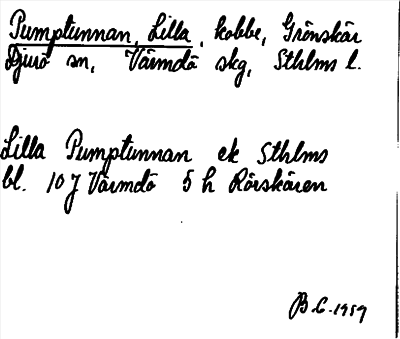 Pumptunnan, Lilla, kobbe, Grönskär
Djurö sn, Värmdö skg, Sthlms l.
Lilla Pumptunnan ek Sthlms
bl. 10 J Värmdö 5 h Rörskären
B.C. 1959